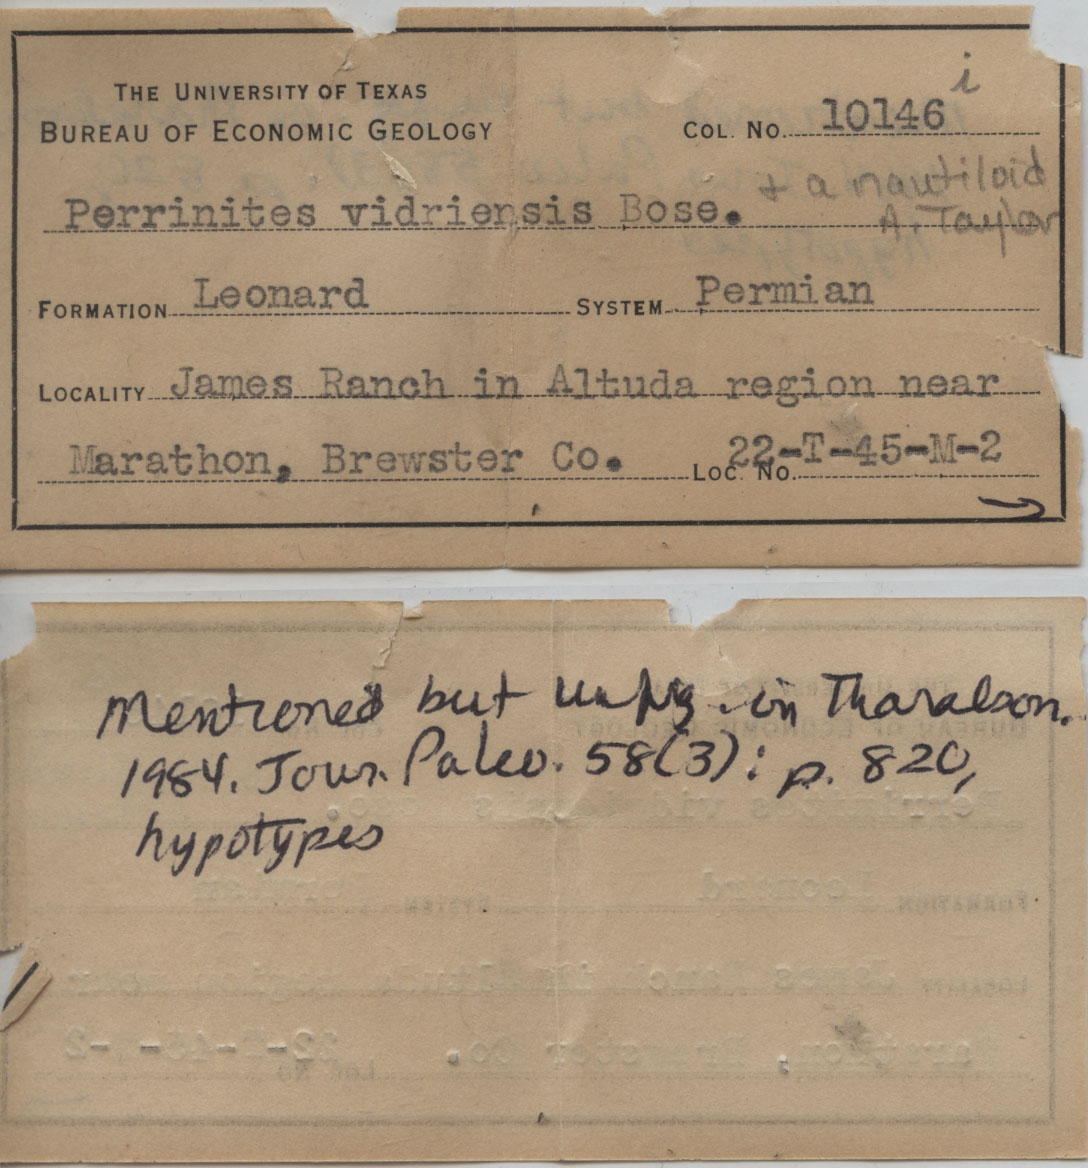 THE UNIVERSITY OF TEXAS
BUREAU OF ECONOMIC GEOLOGY
COL. NO. 10146 i
Perrinites vidriensis Bose. + a nautiloid
A. Taylor
FORMATION Leonard SYSTEM Permian
LOCALITY James Ranch in Altuda region near
Marathon, Brewster Co. LOC. NO. 22-T-45-M-2
Mentioned but unfig. in Tharalson.
1984. Jour. Paleo. 58(3): p. 820,
hypotypes